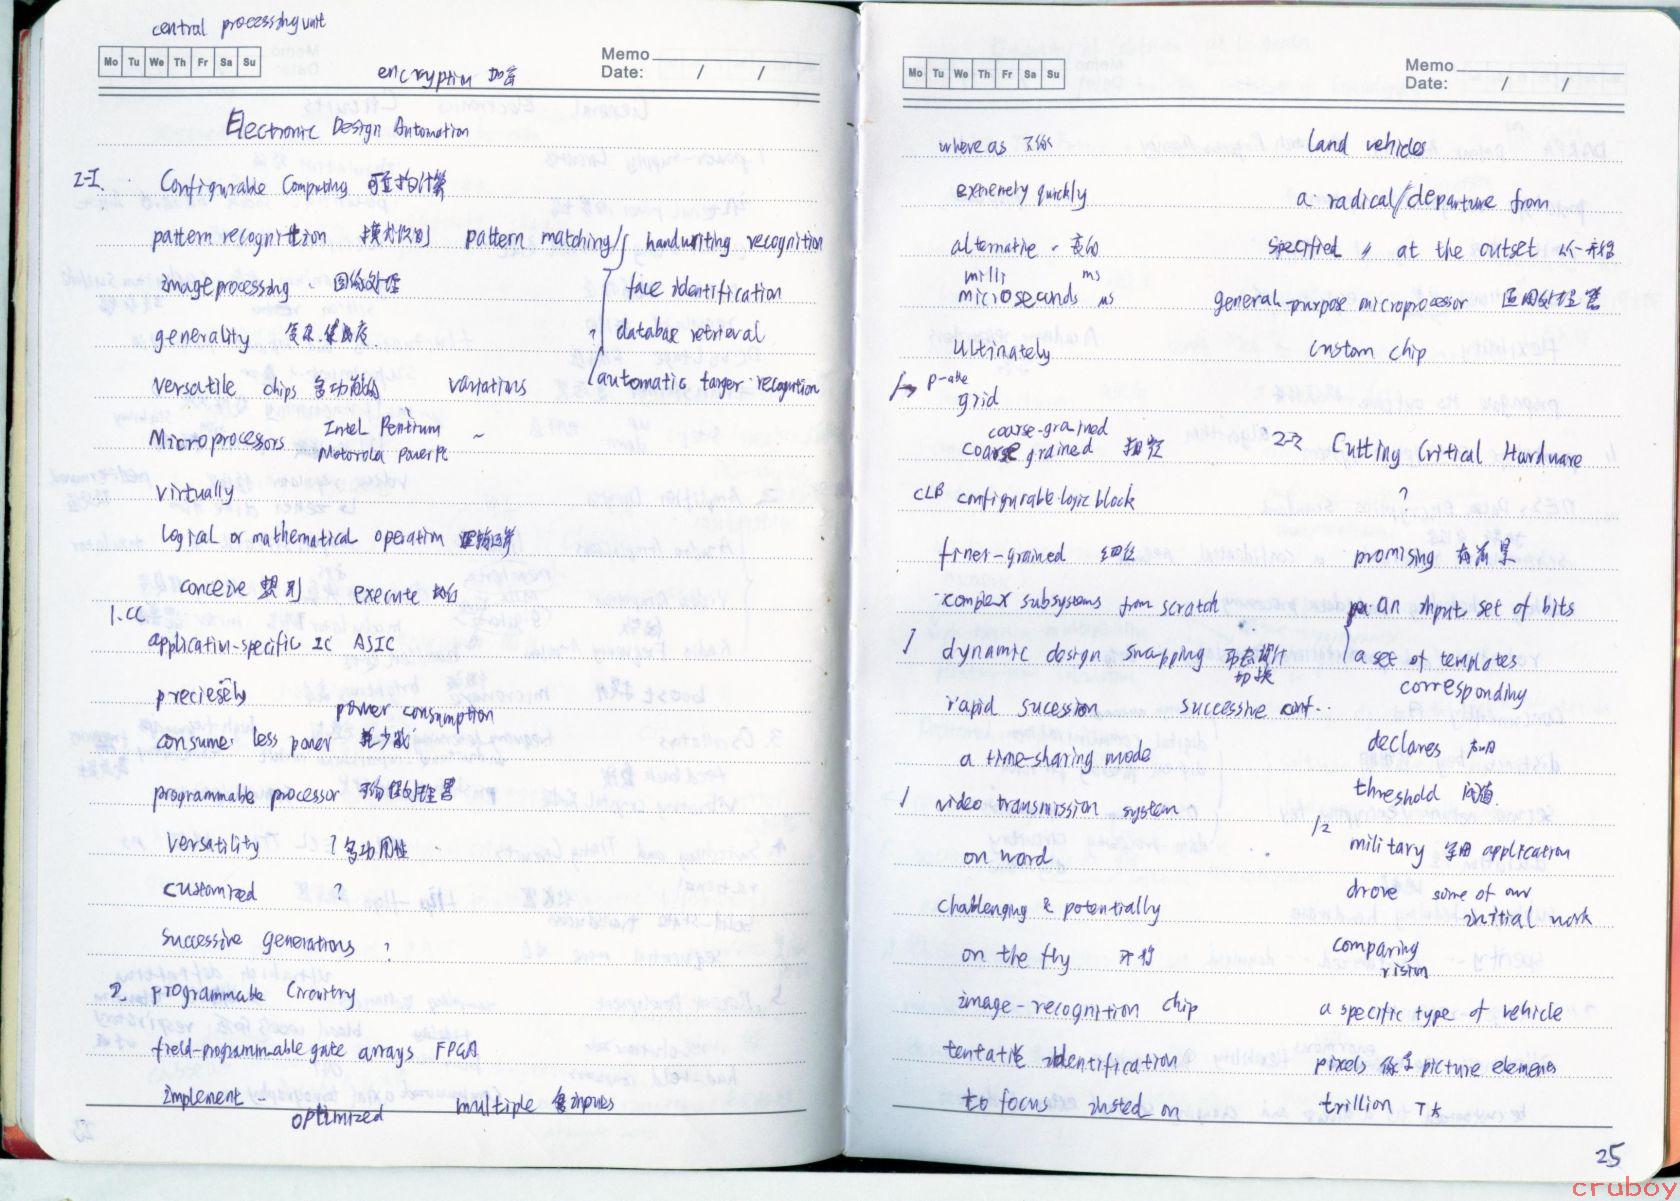 central processing unit
Mo Tu We Th Fr Sa Su
Memo
Date: / /
encryption 加密
Electronic Design Automation
2-1. Configurable Computing 可重构计算
pattern recognition 模式识别 pattern matching handwriting recognition
image processing 图像处理 face identification
generality database retrieval
versatile chips 多功能的 variations automatic target recognition
Microprocessors Intel Pentium
Motorola PowerPC
virtually
logical or mathematical operation 逻辑运算
conceive execute 执行
1. CC
application-specific IC ASIC
preciesely
power consumption
consumer less power 耗少或
programmable processor 可编程处理器
versatility ? 多功用性
customized ?
successive generations ?
2. programmable Circuitry
field-programmable gate arrays FPGA
implement multiple 多 inputs
optimized
Mo Tu We Th Fr Sa Su
Memo
Date: / /
where as land vehicles
extremely quickly a radical/departure from
alternative specified at the outset 从一开始
milli ms
microseconds μs general-purpose microprocessor
Ultinately custom chip
grid
coarse-grained
coarse grained 粗粒 2-2 Cutting Critical Hardware
CLB configurable logic block ?
finer-grained 细粒 promising 有前景
complex subsystems from scratch an input set of bits
dynamic design swapping 动态设计 a set of templates
切换 corresponding
rapid sucession successive conf..
a time-sharing mode declares
threshold 阈值
video transmission system 1/2
on word military 军用 application
challenging & potentially drove some of our
initial work
on the fly comparing
vision
image-recognition chip a specific type of vehicle
tentative identification pixels 像素 picture elements
to focus insted on trillion
25
cruboy